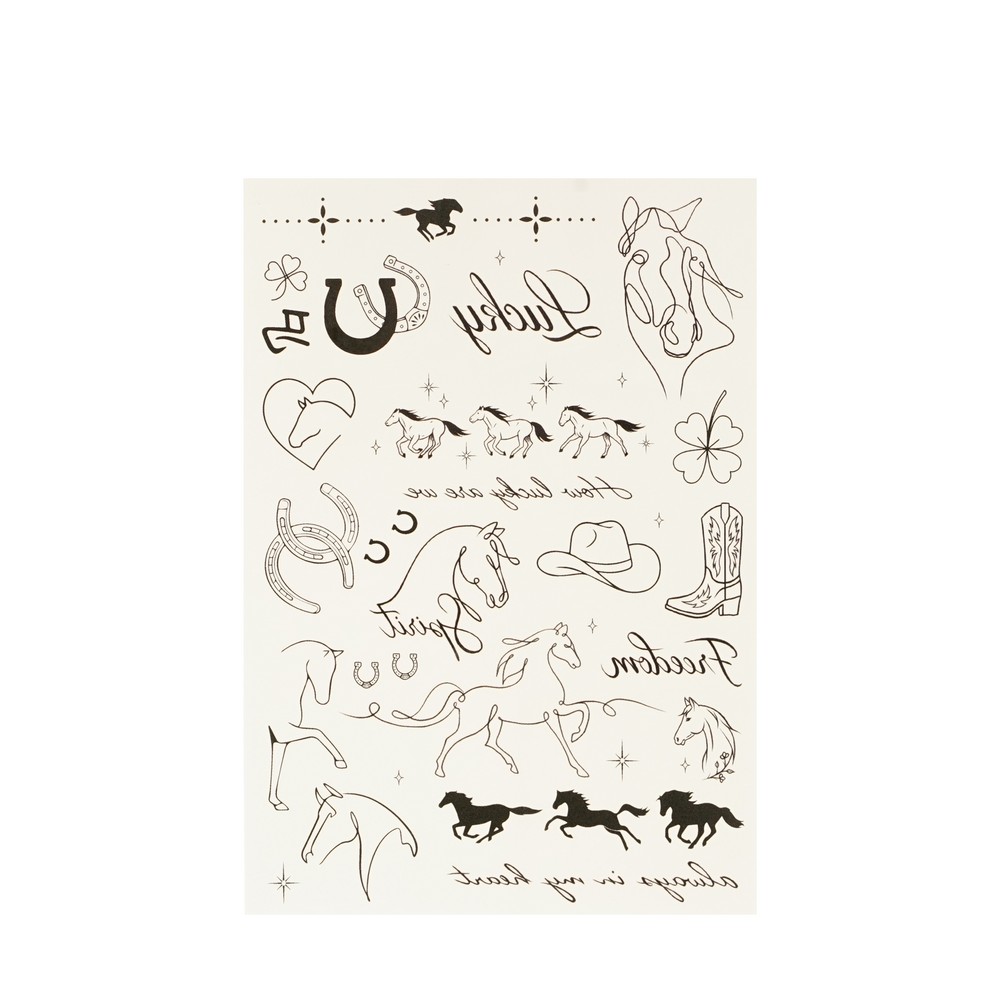 Lucky
How lucky are we
Spirit
Freedom
always in my heart